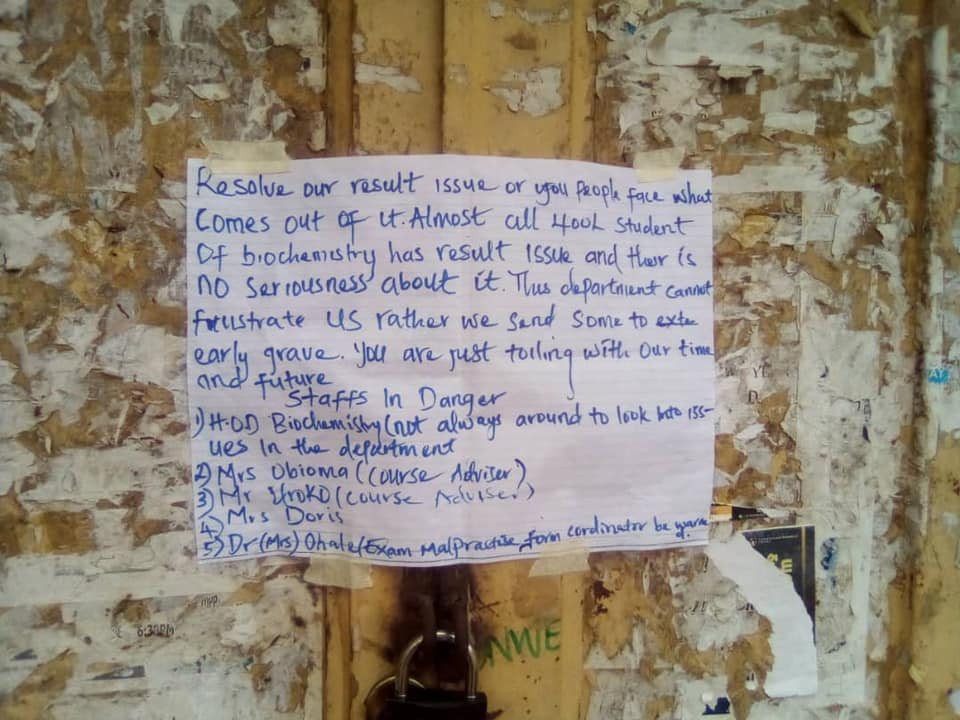 Resolve our result issue or you people face what
comes out of it. Almost all 400L student
Of biochemistry has result issue and ther is
no seriousness about it. This department cannot
frustrate us rather we send some to exte
early grave. You are just toiling with our time
and future
Staffs In Danger
1) H.O.D Biochemistry (not always around to look into iss-
ues In the department
2) Mrs Obioma (Course Adviser)
3) Mr (Course Adviser)
4) Mrs Doris
5) Dr (Mrs) Ohale (Exam Malpractise form cordinator be warne
d.
NWE
MPP
6:30PM